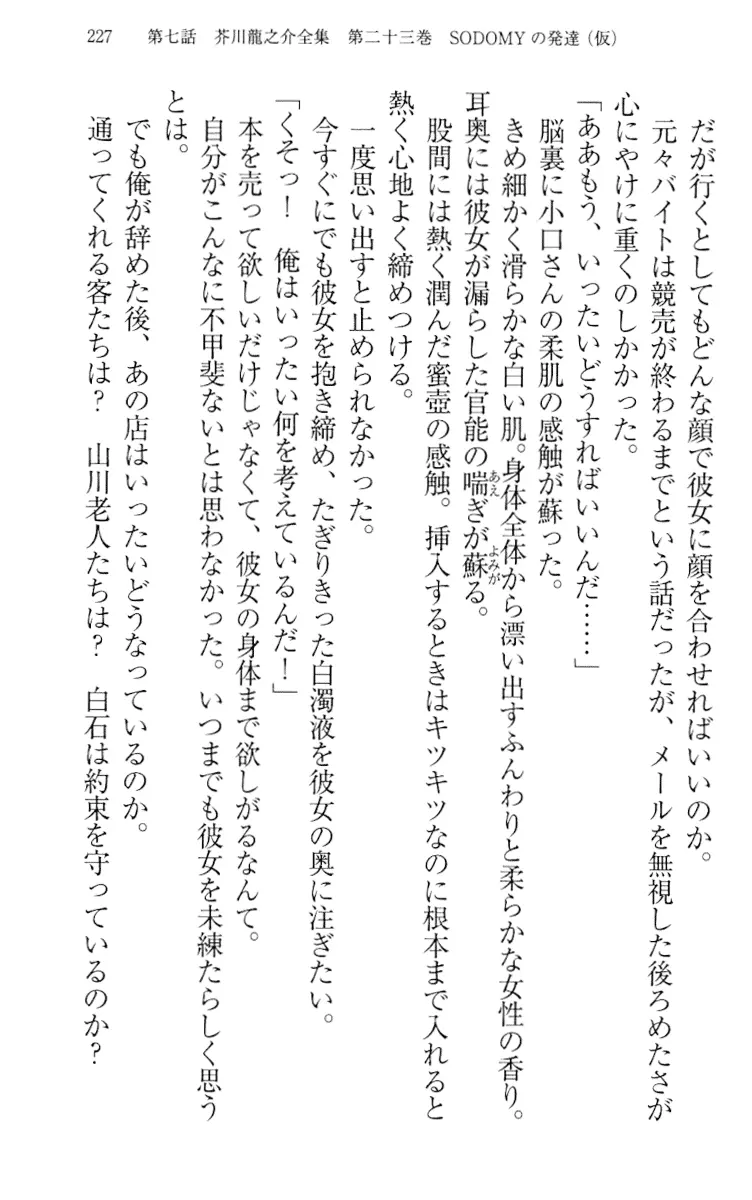 227　第七話　芥川龍之介全集　第二十三巻　SODOMYの発達（仮）
だが行くとしてもどんな顔で彼女に顔を合わせればいいのか。
元々バイトは競売が終わるまでという話だったが、メールを無視した後ろめたさが
心にやけに重くのしかかった。
「ああもう、いったいどうすればいいんだ……」
脳裏に小口さんの柔肌の感触が蘇った。
きめ細かく滑らかな白い肌。身体全体から漂い出すふんわりと柔らかな女性の香り。
耳奥には彼女が漏らした官能の喘ぎが蘇る。
あえ
よみが
股間には熱く潤んだ蜜壺の感触。挿入するときはキツキツなのに根本まで入れると
熱く心地よく締めつける。
一度思い出すと止められなかった。
今すぐにでも彼女を抱き締め、たぎりきった白濁液を彼女の奥に注ぎたい。
「くそっ！　俺はいったい何を考えているんだ！」
本を売って欲しいだけじゃなくて、彼女の身体まで欲しがるなんて。
自分がこんなに不甲斐ないとは思わなかった。いつまでも彼女を未練たらしく思う
とは。
でも俺が辞めた後、あの店はいったいどうなっているのか。
通ってくれる客たちは？　山川老人たちは？　白石は約束を守っているのか？